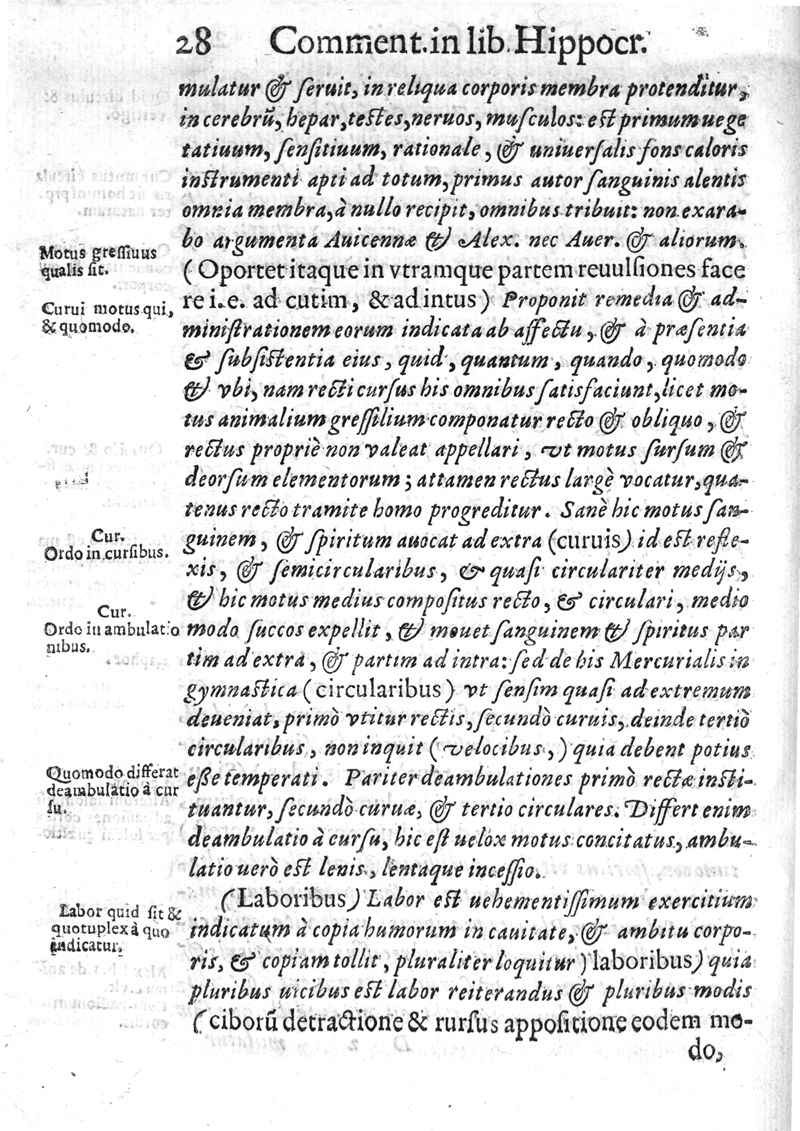 28 Comment. in lib. Hippocr.
mulatur & ſeruit, in reliqua corporis membra protenditur,
in cerebrũ, hepar, teſtes, neruos, muſculos: eſt primum uege
tatiuum, ſenſitiuum, rationale, & uniuerſalis fons caloris
inſtrumenti apti ad totum, primus autor ſanguinis alentis
omnia membra, à nullo recipit, omnibus tribuit: non exara-
bo argumenta Auicennæ & Alex. nec Auer. & aliorum.
Motus greſſiuus
qualis ſit.
(Oportet itaque in vtramque partem reuulſiones face
re i.e. ad cutim, & ad intus) Proponit remedia & ad-
Curui motus qui,
& quomodo.
miniſtrationem eorum indicata ab affectu, & à præſentia
& ſubſiſtentia eius, quid, quantum, quando, quomodo
& vbi, nam recti curſus his omnibus ſatisfaciunt, licet mo-
tus animalium greſſilium componatur recto & obliquo, &
rectus propriè non valeat appellari, vt motus ſurſum &
deorſum elementorum; attamen rectus largè vocatur, qua-
tenus recto tramite homo progreditur. Sanè hic motus ſan-
Cur.
Ordo in curſibus.
guinem, & ſpiritum auocat ad extra (curuis) id eſt refle-
xis, & ſemicircularibus, & quaſi circulariter medijs,
& hic motus medius compoſitus recto, & circulari, medio
Cur.
Ordo in ambulatio
nibus.
modo ſuccos expellit, & mouet ſanguinem & ſpiritus par
tim ad extra, & partim ad intra: ſed de his Mercurialis in
gymnaſtica (circularibus) vt ſenſim quaſi ad extremum
deueniat, primò vtitur rectis, ſecundò curuis, deinde tertiò
circularibus, non inquit (velocibus,) quia debent potius
Quomodo differat
deambulatio à cur
ſu.
eſſe temperati. Pariter deambulationes primò rectæ inſti-
tuantur, ſecundò curuæ, & tertio circulares. Differt enim
deambulatio à curſu, hic eſt uelox motus concitatus, ambu-
latio uerò eſt lenis, lentaque inceſſio.
(Laboribus) Labor eſt uehementiſſimum exercitium
Labor quid ſit &
quotuplex à quo
indicatur.
indicatum à copia humorum in cauitate, & ambitu corpo-
ris, & copiam tollit, pluraliter loquitur) laboribus) quia
pluribus uicibus eſt labor reiterandus & pluribus modis
(ciborũ detractione & rurſus appoſitione eodem mo-
do,